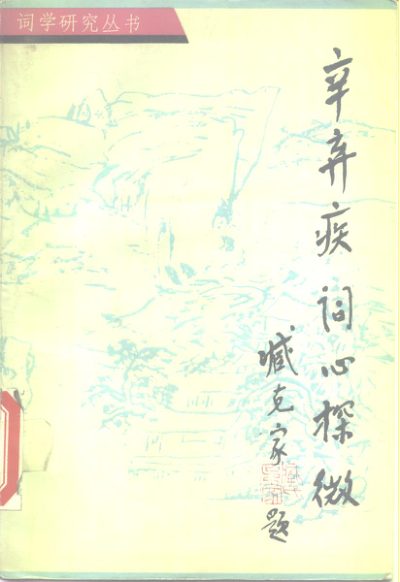 词学研究丛书
辛弃疾词心探微
臧克家题